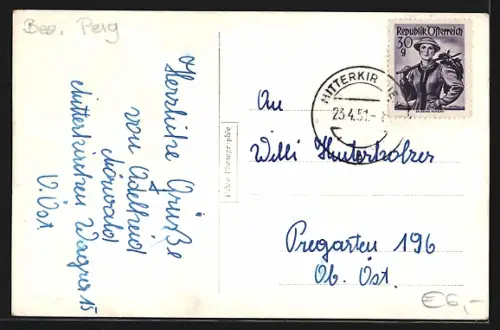 Bez. Perg
Herrliche Grüße
von Adelheid
Mitterkirchen Wagra 15
O.Öst
Republik Österreich
30
g
MITTERKIRCHE
23.4.51.-
An
Willi Hinterholzer
Pregarten 196
Ob. Öst.
€6,-